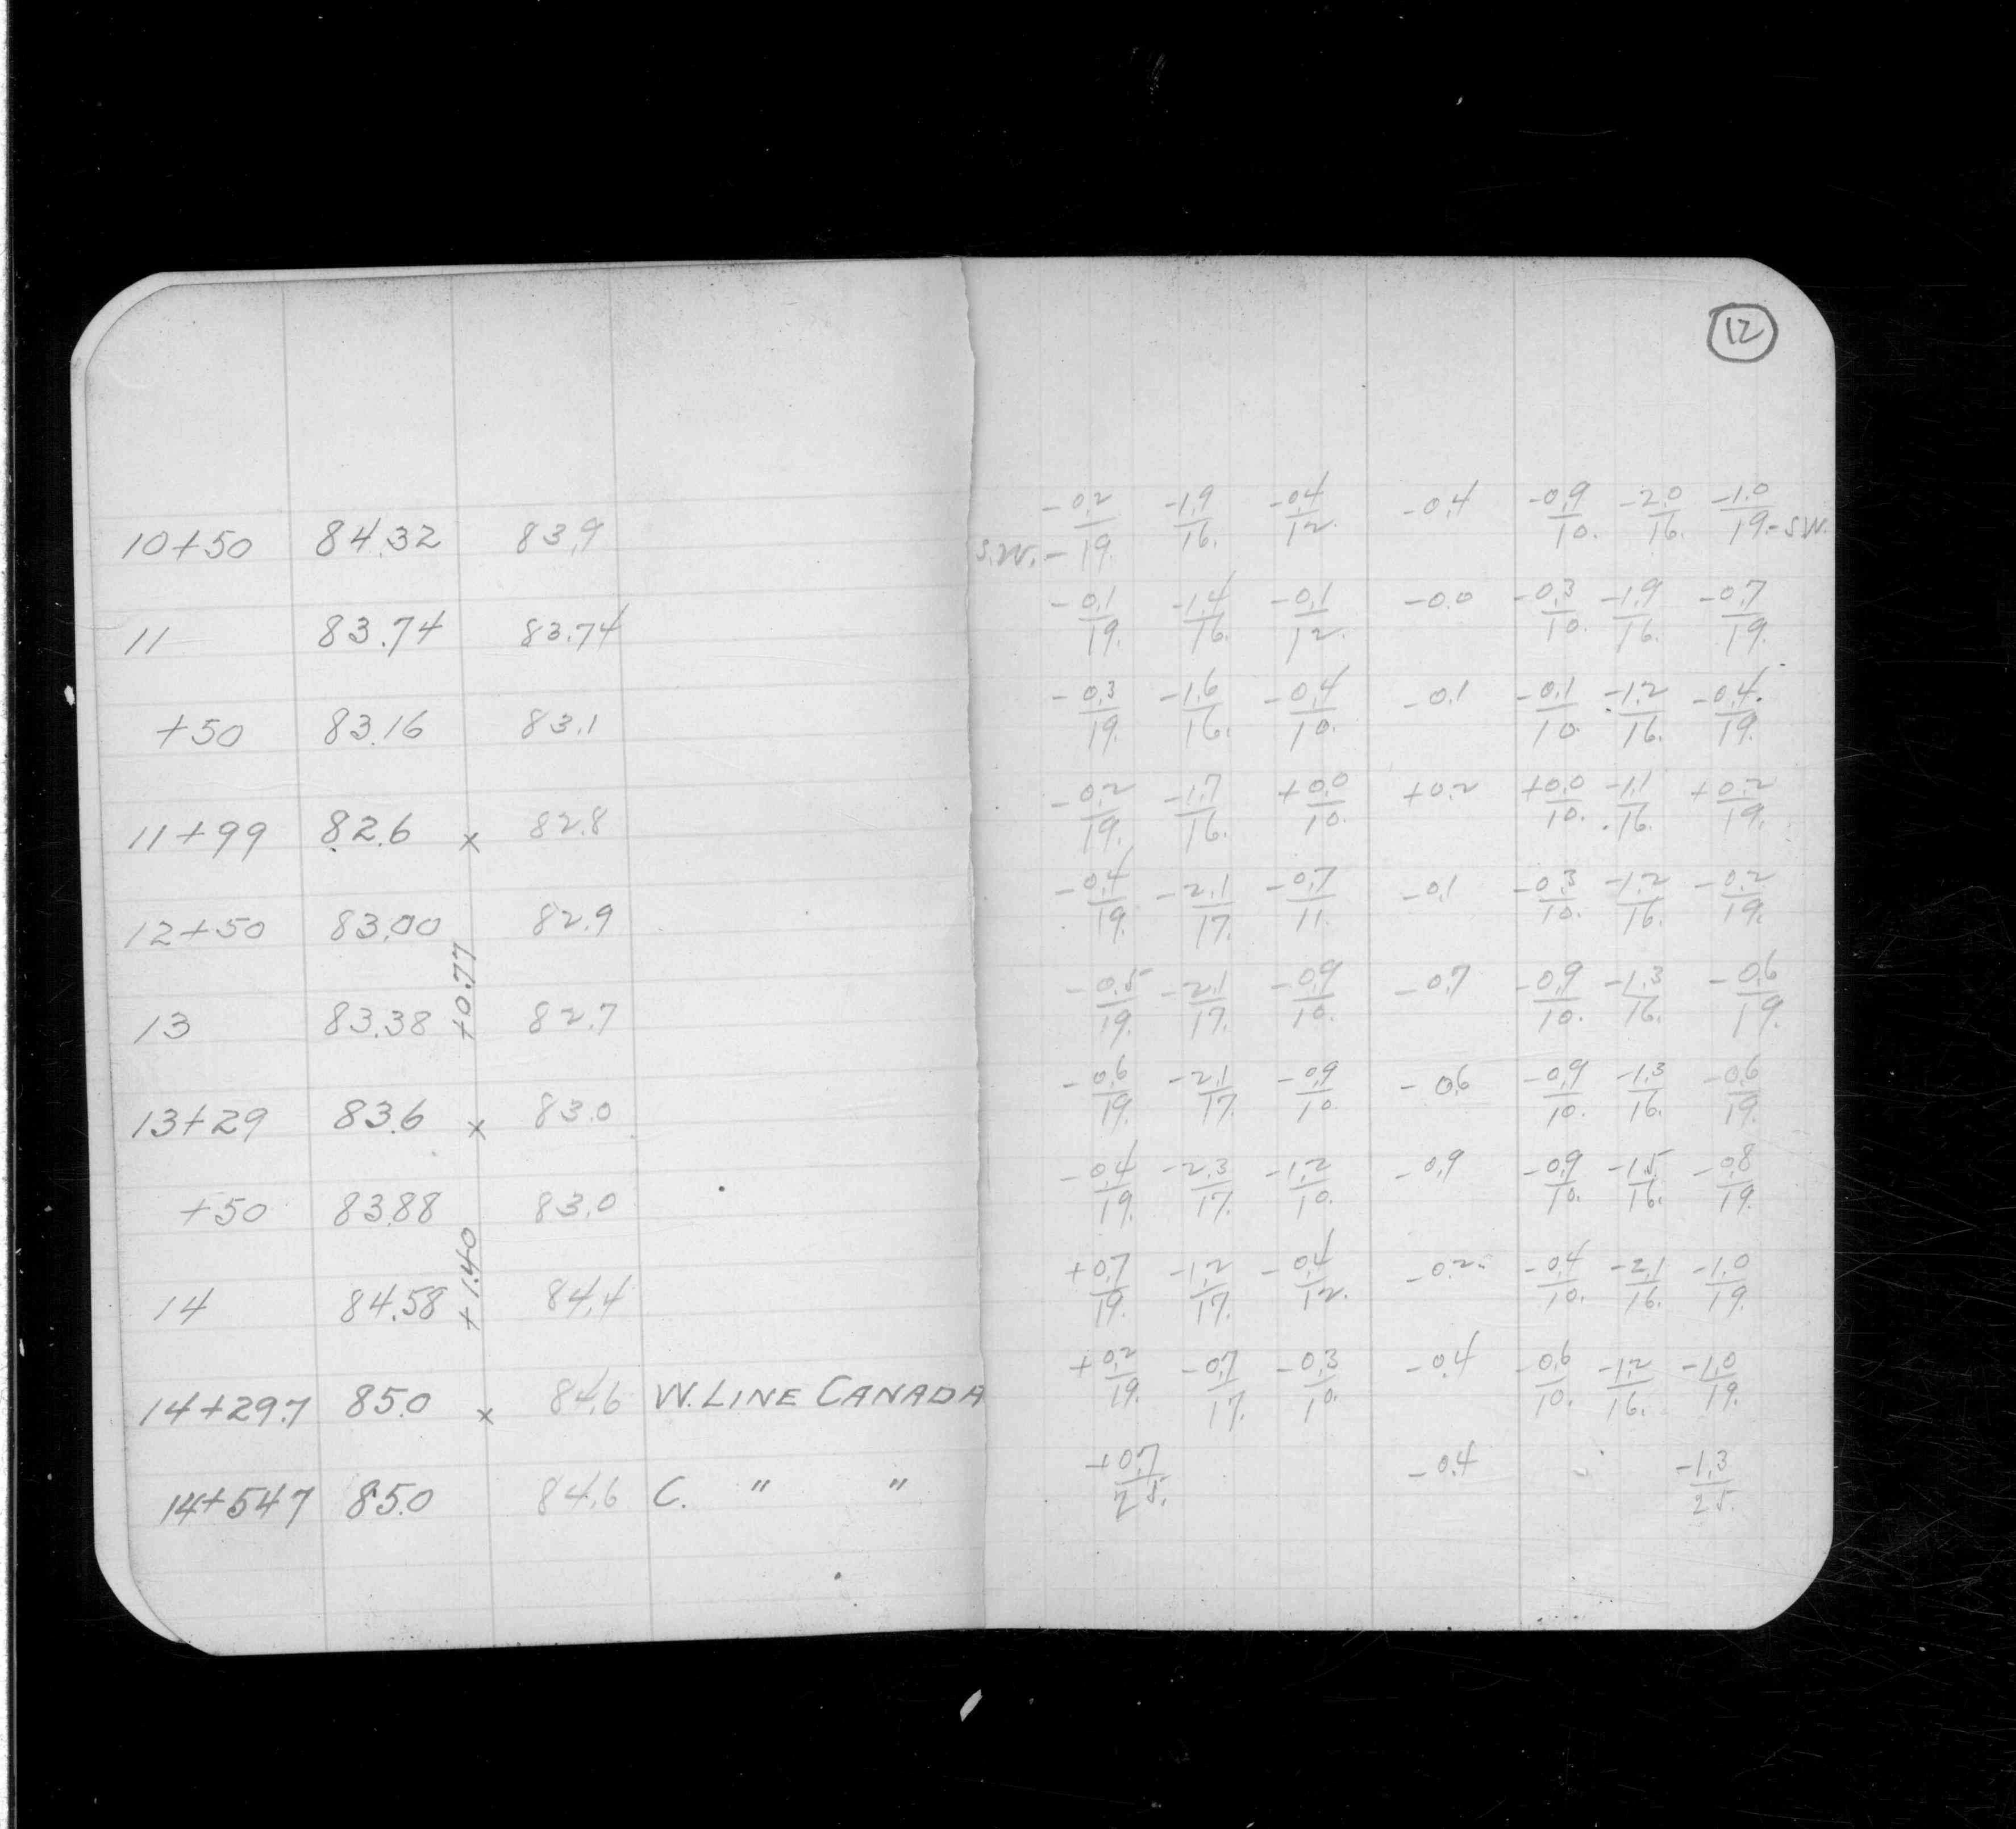 12
10+50 84.32 83.9 -0.2/19. -1.9/16. -0.4/12. -0.4 -0.9/10. -2.0/16. -1.0/19.-S.W.
S.W.-
11 83.74 83.74 -0.1/19. -1.4/16. -0.1/12. -0.0 -0.3/10. -1.9/16. -0.7/19.
+50 83.16 83.1 -0.3/19. -1.6/16. -0.4/10. -0.1 -0.1/10. -1.2/16. -0.4/19.
11+99 82.6 x 82.8 -0.2/19. -1.7/16. +0.0/10. +0.2 +0.0/10. -1.1/16. +0.2/19.
12+50 83.00 82.9 -0.4/19. -2.1/17. -0.7/11. -0.1 -0.3/10. -1.2/16. -0.2/19.
+0.77
13 83.38 82.7 -0.5/19. -2.1/17. -0.9/10. -0.7 -0.9/10. -1.3/16. -0.6/19.
13+29 83.6 x 83.0 -0.6/19. -2.1/17. -0.9/10. -0.6 -0.9/10. -1.3/16. -0.6/19.
+50 83.88 83.0 -0.4/19. -2.3/17. -1.2/10. -0.9 -0.9/10. -1.5/16. -0.8/19.
+1.40
14 84.58 84.4 +0.7/19. -1.2/17. -0.4/12. -0.2 -0.4/10. -2.1/16. -1.0/19.
14+29.7 85.0 x 84.6 W. LINE CANADA +0.2/19. -0.7/17. -0.3/10. -0.4 -0.6/10. -1.2/16. -1.0/19.
14+54.7 85.0 84.6 C. " " +0.7/25. -0.4 -1.3/25.